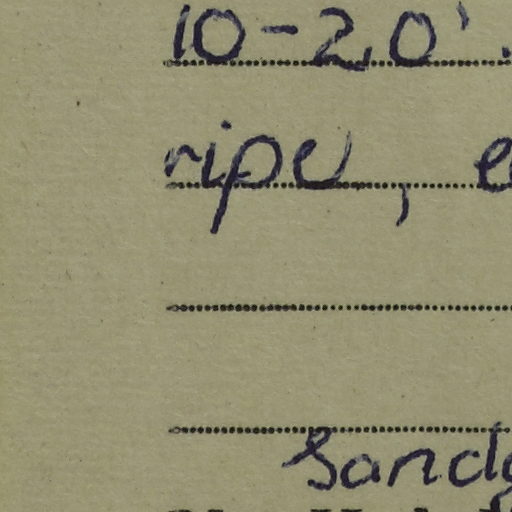 10-20'.
ripe, e
Sand